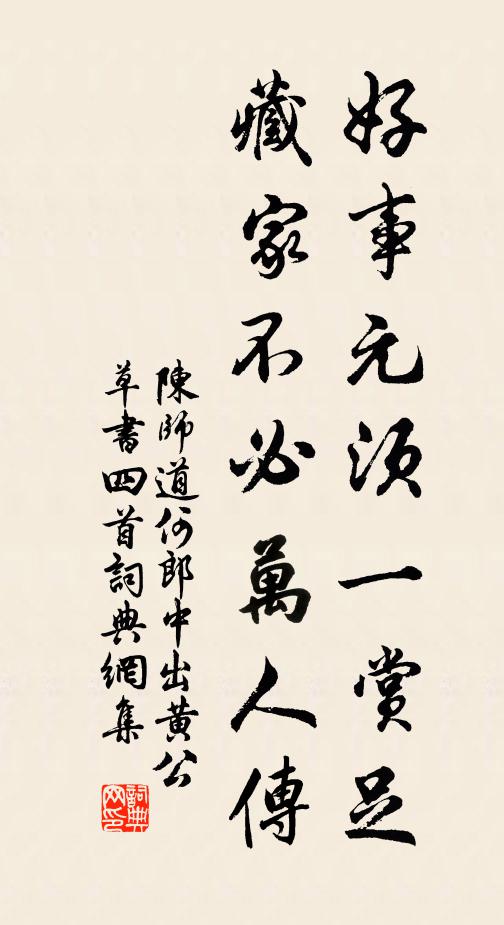 好事元須一賞足
藏家不必萬人傳
陳師道何郎中出黄公
草書四首詞典網集
詞典網印